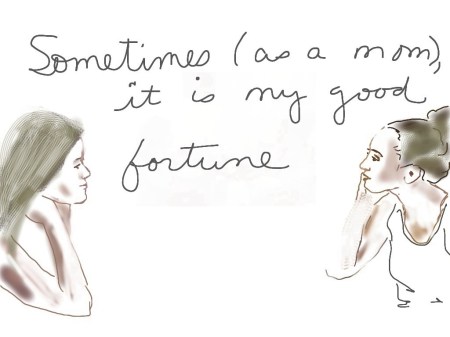 Sometimes (as a mom),
it is my good
fortune